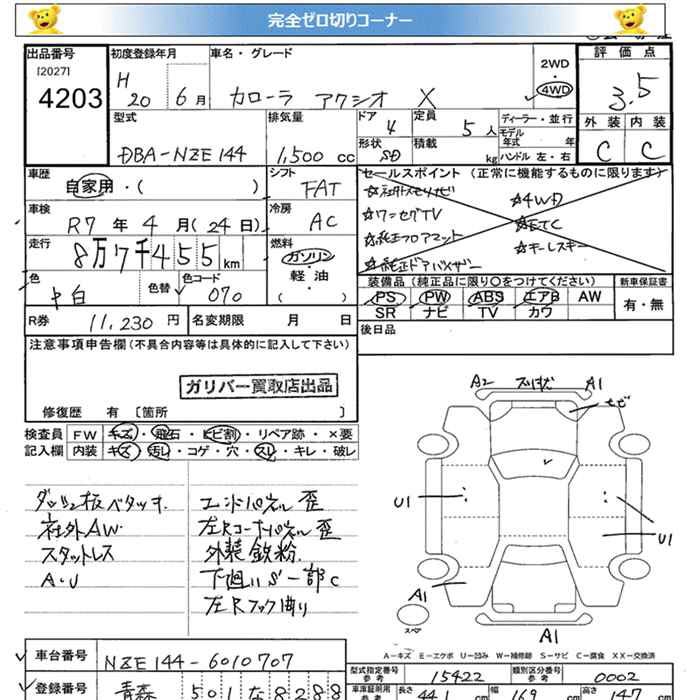 完全ゼロ切りコーナー
出品番号
[2027]
4203
初度登録年月
H
20 6月
車名・グレード
カローラ アクシオ X
2WD
4WD
評価点
3.5
外装 内装
C C
型式
DBA-NZE144
排気量
1,500 cc
ドア
4
形状
SD
定員
5人
積載
kg
ディーラー・並行
モデル
年式 年
ハンドル 左・右
車歴
自家用・( )
シフト
FAT
セールスポイント (正常に機能するものに限ります)
☆社外メモリナビ
☆ワンセグTV
☆純正フロアマット
☆純正ドアバイザー
☆4WD
☆ETC
☆キーレスキー
車検
R7 年 4 月 (24日)
冷房
AC
走行
8万7千455 km
燃料
ガソリン
軽・油
( )
色
中白
色替
色コード
070
装備品 (純正品に限り○をつけてください)
PS PW ABS エアB AW
SR ナビ TV カワ
新車保証書
有・無
R券 11,230 円
名変期限 月 日
後日品
注意事項申告欄 (不具合内容等は具体的に記入して下さい)
ガリバー買取店出品
修復歴 有 [箇所 ]
検査員 FW キズ・飛石・ヒビ割・リペア跡・×要
記入欄 内装 キズ・汚し・コゲ・穴・スレ・キレ・破レ
ダッシュ板ベタツキ
社外AW
スタットレス
A・U
エンドパネル歪
左Rコーナーパネル歪
外装鉄粉
下廻りS一部C
左Rフック曲り
A2 スリ状 A1
サビ
U1
U1
A1
スペア
A1
A-キズ E-エクボ U-凹み W-補修跡 S-サビ C-腐食 XX-交換済
車台番号
NZE144-6010707
登録番号
青森 501な8288
型式指定番号
参考
15422
類別区分番号
参考
0002
車検証前用
参考
長さ 441 cm
幅 169 cm
高さ 147 cm